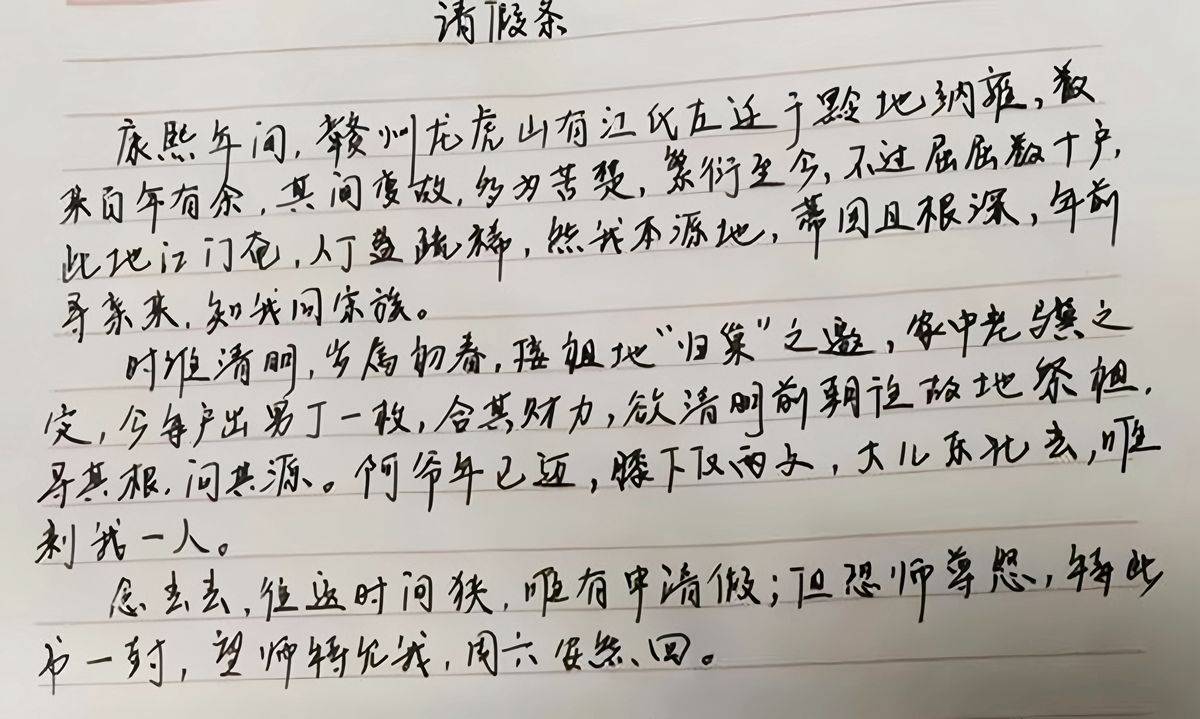 请假条
康熙年间,赣州龙虎山有江氏左迁于黔地纳雍,数
来百年有余,其间变故,多为苦楚,繁衍至今,不过屈屈数十户,
此地江门苍,人丁益疏稀,然我本源地,蒂固且根深,年前
寻亲来,知我同宗族。
时维清明,岁属初春,接祖地“归巢”之邀,家中老冀之
定,今每户出男丁一枚,合其财力,欲清明前朝往故地祭祖,
寻其根,问其源。阿爷年已迈,膝下仅两文,大儿东北去,唯
剩我一人。
念去去,往返时间狭,唯有申请假;但恐师尊怒,特此
书一封,望师特允我,周六安然回。